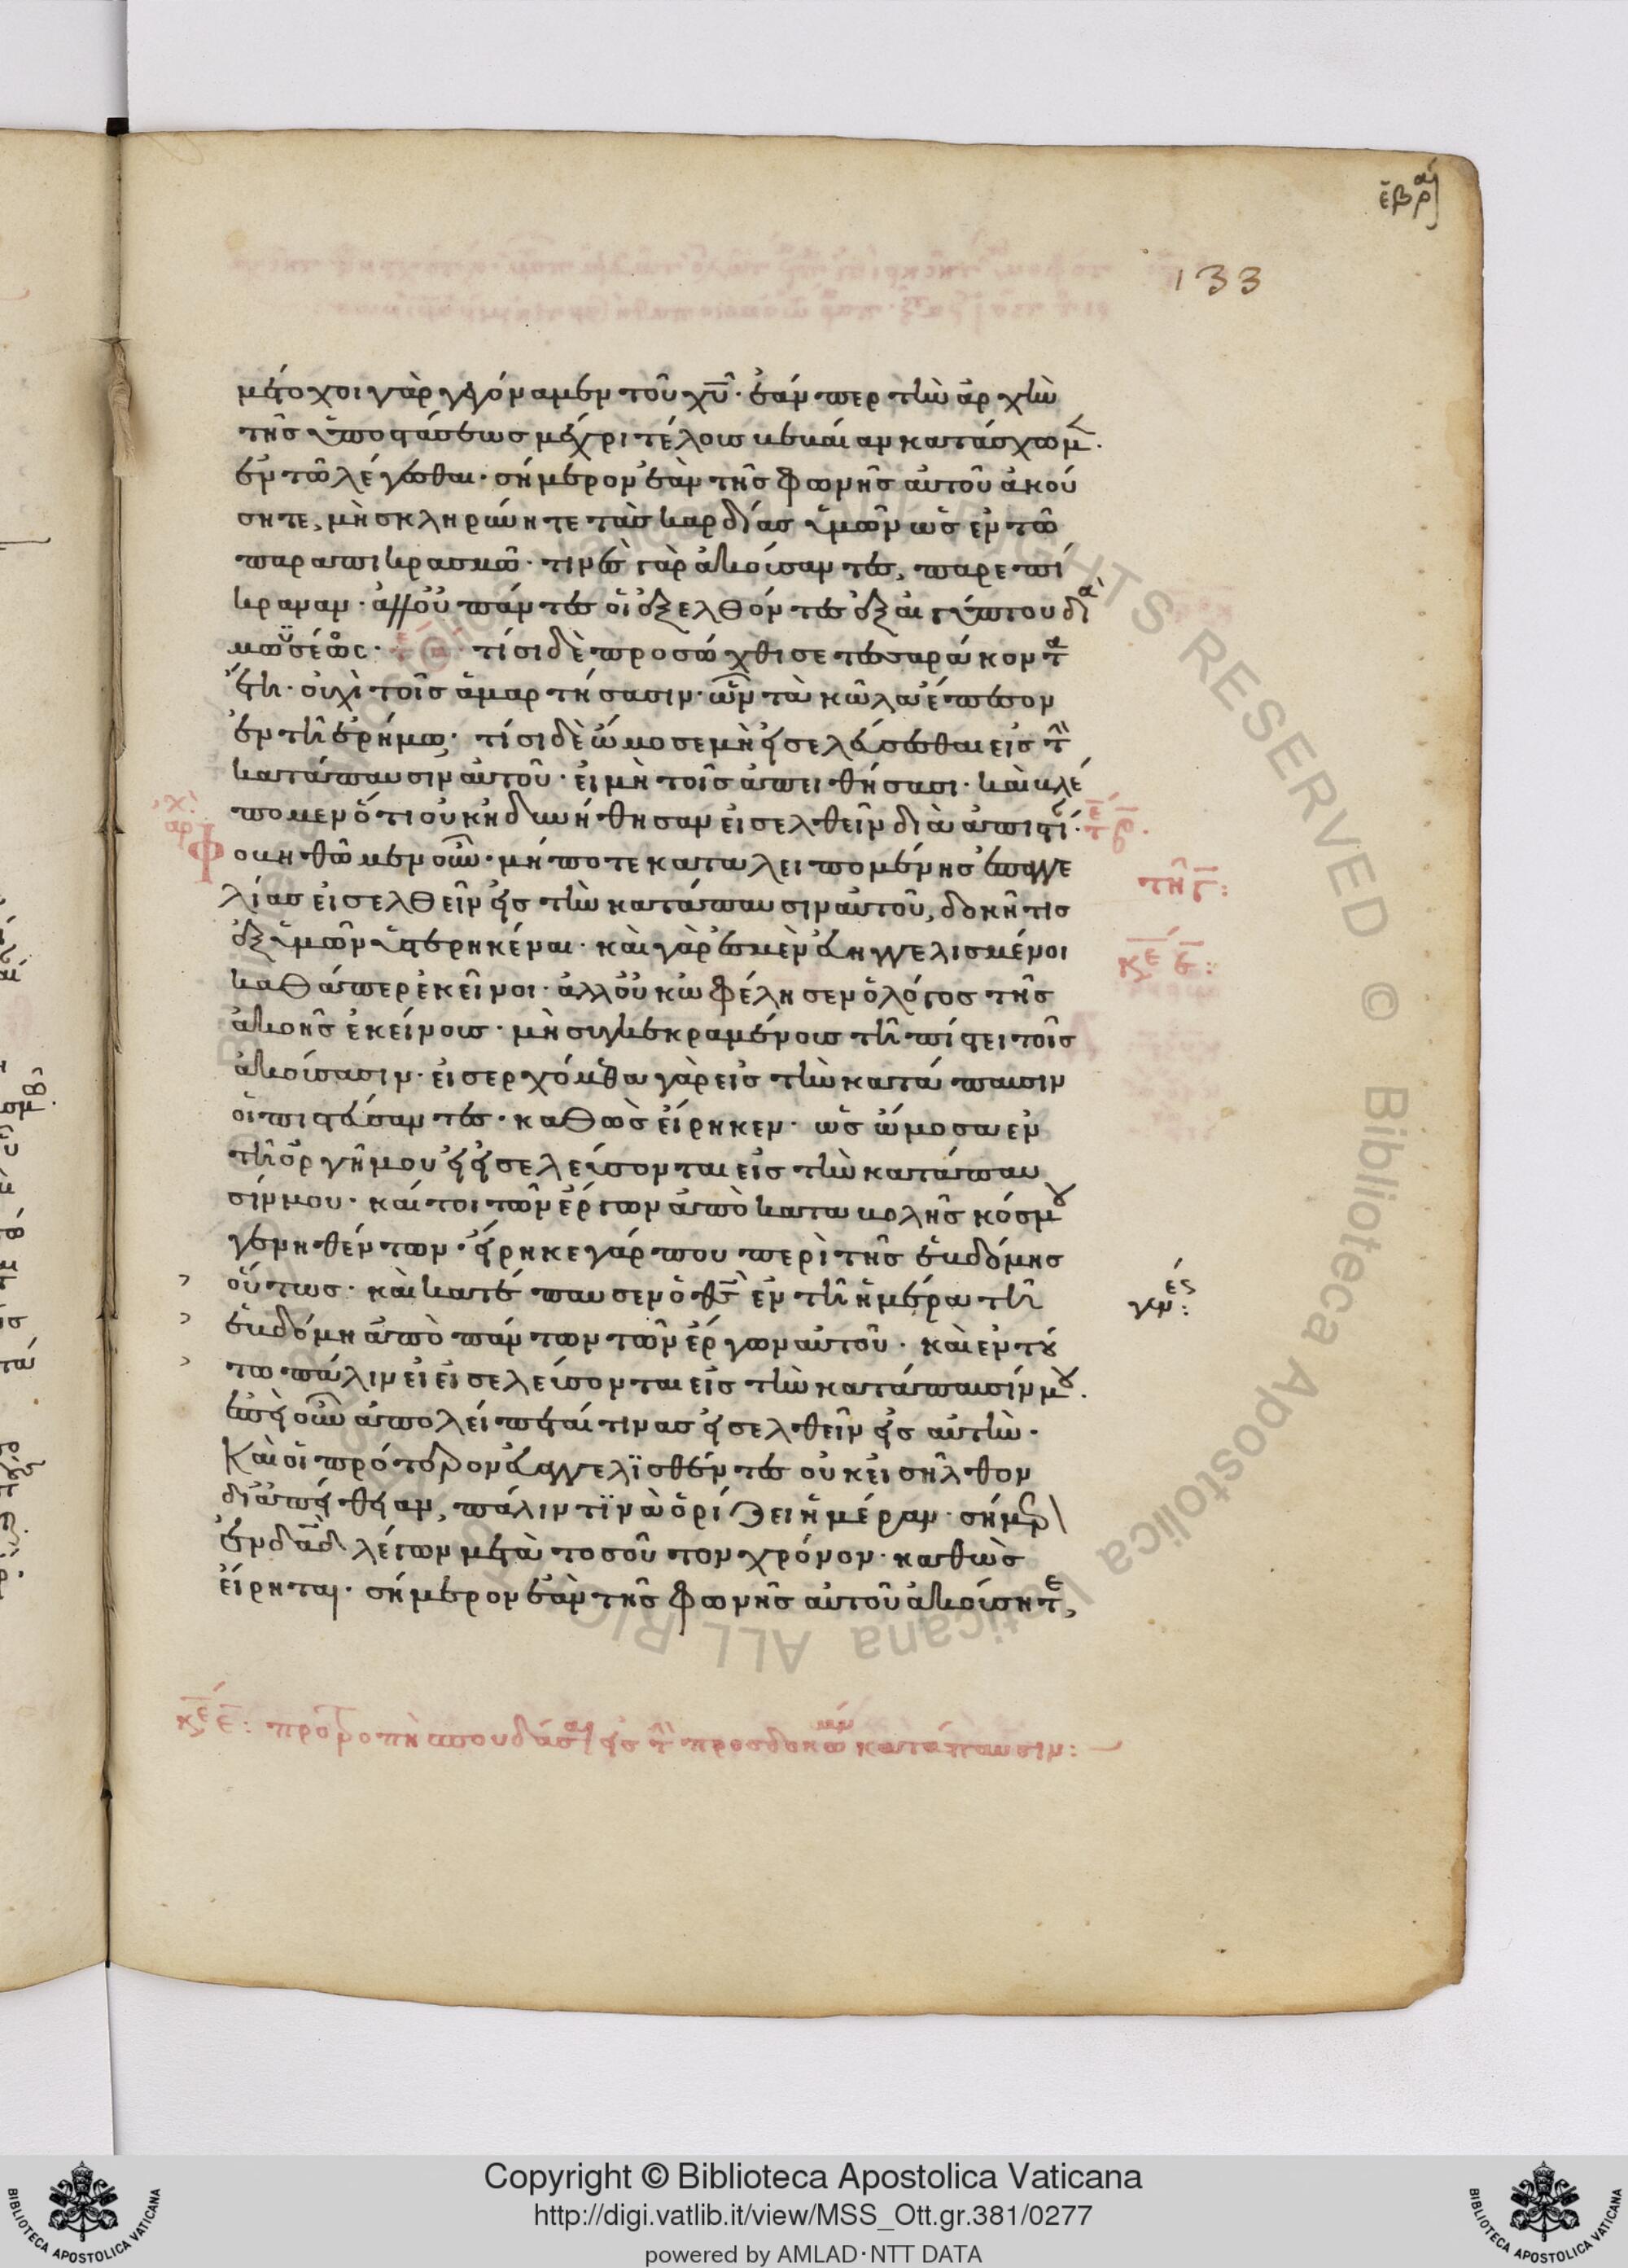 ἑβρ
133
μέτοχοι γὰρ γεγόναμεν τοῦ χῦ· ἐάν περ τὴν ἀρχὴν
τῆς ὑποστάσεως μέχρι τέλους βεβαίαν κατάσχωμ.
ἐν τῶ λέγεσθαι· σήμερον ἐὰν τῆς φωνῆς αὐτοῦ ἀκού
σητε, μὴ σκληρύνητε τὰς καρδίας ὑμῶν ὡς ἐν τῶ
παραπικρασμῶ· τινὲς γὰρ ἀκούσαντες, παρεπί
κραναν· ἀλλ οὐ πάντες οἱ ἐξελθόντες ἐξ αἰγύπτου διὰ
μωϋσέως· τίσι δὲ προσώχθισε τεσσαράκοντα
ἔτη· οὐχὶ τοῖς ἁμαρτήσασιν· ὧν τὰ κῶλα ἔπεσον
ἐν τῆ ἐρήμω· τίσι δὲ ὤμοσε μὴ εἰσελεύσεσθαι εἰς τὴ
κατάπαυσιν αὐτοῦ· εἰ μὴ τοῖς ἀπειθήσασι· καὶ βλέ
πομεν ὅτι οὐκ ἠδυνήθησαν εἰσελθεῖν δι ἀπιστί·
Φοβηθῶμεν οὖν· μήποτε καταλειπομένης ἐπαγγε
λίας εἰσελθεῖν εἰς τὴν κατάπαυσιν αὐτοῦ, δοκῆ τις
ἐξ ὑμῶν ὑστερηκέναι· καὶ γάρ ἐσμεν εὐηγγελισμένοι
καθάπερ ἐκεῖνοι· ἀλλ οὐκ ὠφέλησεν ὁ λόγος τῆς
ἀκοῆς ἐκείνους· μὴ συγκεκραμένους τῆ πίστει τοῖς
ἀκούσασιν· εἰσερχόμεθα γὰρ εἰς τὴν κατάπαυσιν
οἱ πιστεύσαντες· καθὼς εἴρηκεν· ὡς ὤμοσα ἐν
τῆ ὀργῆ μου εἰ εἰσελεύσονται εἰς τὴν κατάπαυ
σίν μου· καί τοι τῶν ἔργων ἀπὸ καταβολῆς κόσμου
γενηθέντων· εἴρηκε γάρ που περὶ τῆς ἑβδόμης
οὕτως· καὶ κατέπαυσεν ὁ θς ἐν τῆ ἡμέρα τῆ
ἑβδόμη ἀπὸ πάντων τῶν ἔργων αὐτοῦ· καὶ ἐν τού
τω πάλιν εἰ εἰσελεύσονται εἰς τὴν κατάπαυσίν μου.
ἐπεὶ οὖν ἀπολείπεται τινὰς εἰσελθεῖν εἰς αὐτὴν·
Καὶ οἱ πρότερον εὐαγγελϊσθέντες οὐκ εἰσῆλθον
δι ἀπείθειαν, πάλιν τϊνὰ ὁρίζει ἡμέραν· σήμερ
ἐν δαδ λέγων μετὰ τοσοῦτον χρόνον· καθὼς
εἴρηται· σήμερον ἐὰν τῆς φωνῆς αὐτοῦ ἀκούσητε,
κε ε: προτροπὴ σπουδάσαι εἰς τὴ προσδοκωμέν κατάπαυσιν:
Copyright © Biblioteca Apostolica Vaticana
http://digi.vatlib.it/view/MSS_Ott.gr.381/0277
powered by AMLAD·NTT DATA